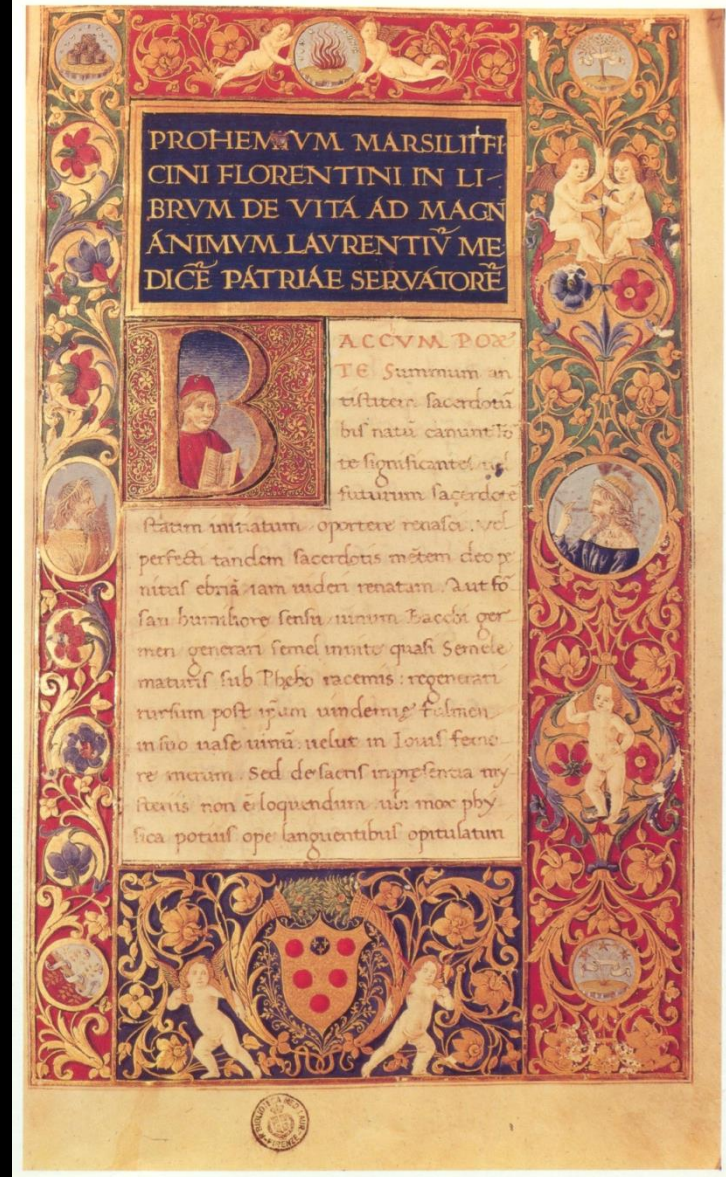 PROHEMIVM MARSILII FI
CINI FLORENTINI IN LI-
BRVM DE VITA AD MAGN
ANIMVM LAVRENTIV̄ ME
DICĒ PATRIAE SERVATORĒ
BACCVM POE
TE Summum an
tistitem sacerdotū
bis natū canunt fo
te significantes vel
futurum sacerdotē
statim initiatum oportere renasci. vel
perfecti tandem sacerdotis mētem deo pe
nitus ebriā iam videri renatam. Aut fo
san humiliore sensu vinum Bacchi ger
men generari semel in vite quasi Semele
maturis sub Phebo racemis: regenerari
rursum post ipsum vindemię fulmen
in suo vase vinū: velut in Iovis femo
re merum. Sed de sacris in pręsentia my
steriis non ē loquendum ubi mox phy
sica potius ope languentibus opitulaturi